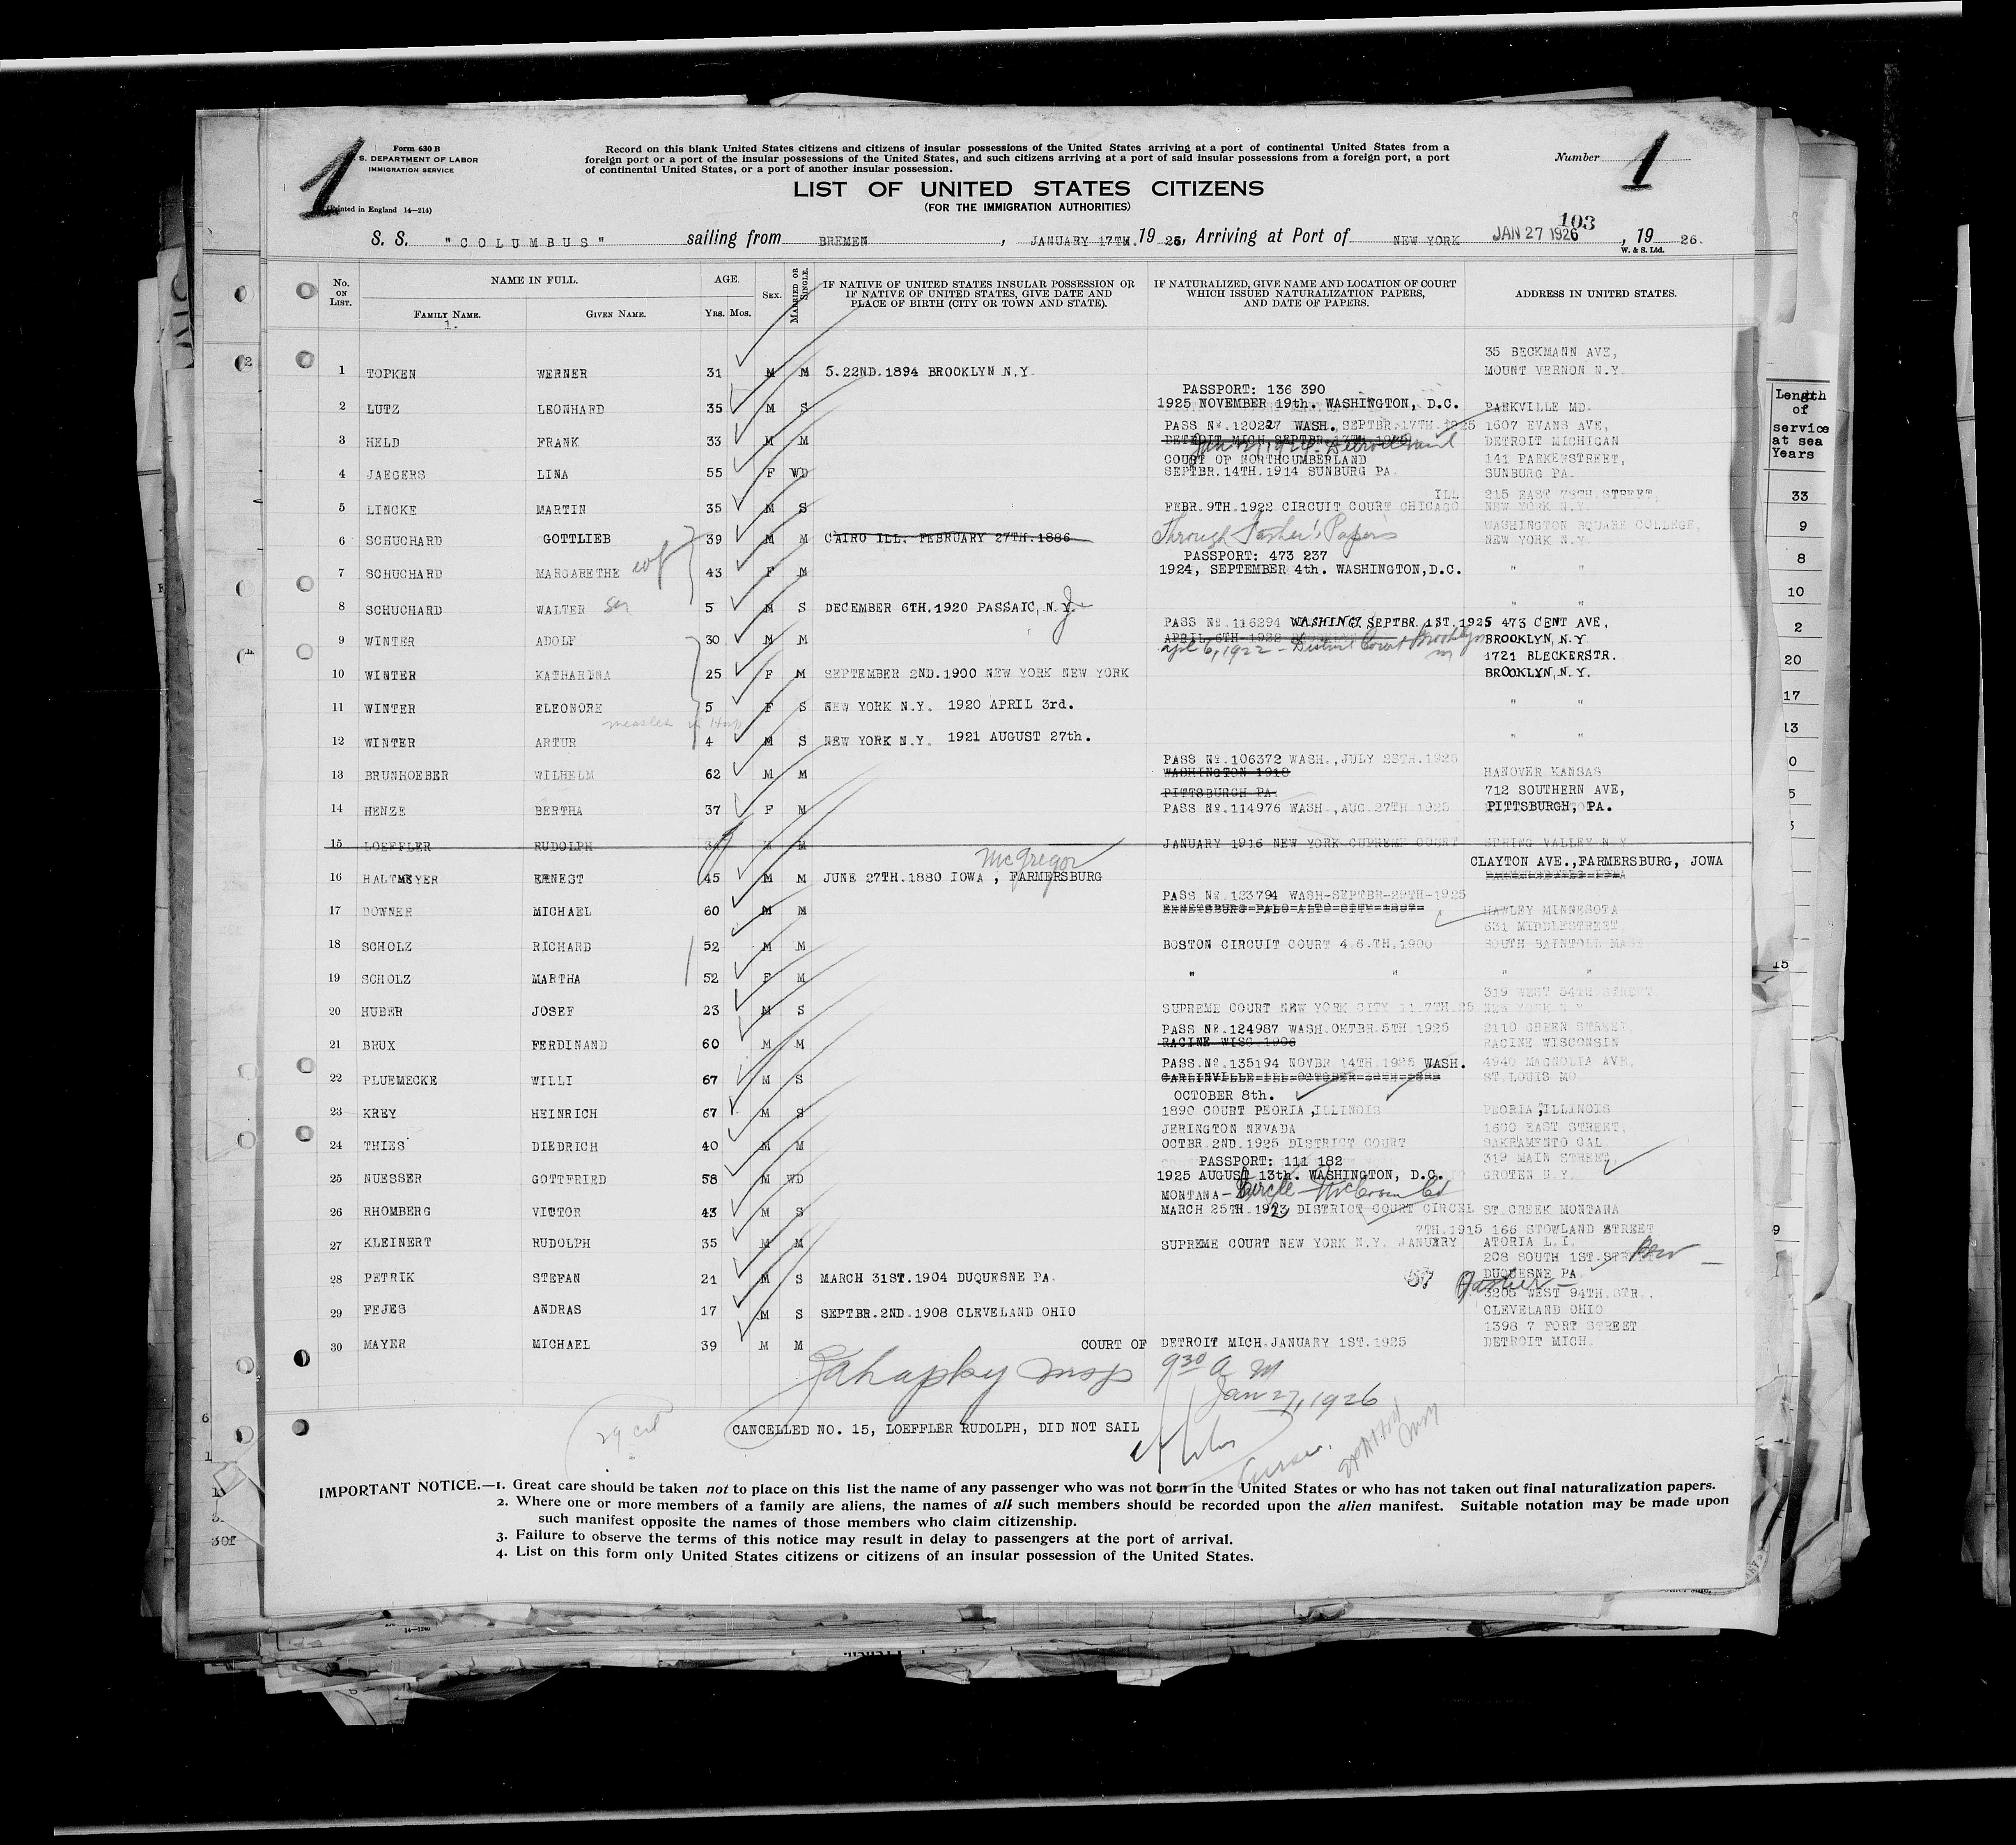 Form 630 B
S. DEPARTMENT OF LABOR
IMMIGRATION SERVICE
(Printed in England 14—214)
1
Record on this blank United States citizens and citizens of insular possessions of the United States arriving at a port of continental United States from a
foreign port or a port of the insular possessions of the United States, and such citizens arriving at a port of said insular possessions from a foreign port, a port
of continental United States, or a port of another insular possession.
Number 1
LIST OF UNITED STATES CITIZENS
(FOR THE IMMIGRATION AUTHORITIES)
103
S. S. "COLUMBUS" sailing from BREMEN, JANUARY 17TH. 1926, Arriving at Port of NEW YORK JAN 27 1926, 19 26.
W. & S. Ltd.
No. ON LIST. NAME IN FULL. AGE. SEX. MARRIED OR SINGLE. IF NATIVE OF UNITED STATES INSULAR POSSESSION OR IF NATIVE OF UNITED STATES, GIVE DATE AND PLACE OF BIRTH (CITY OR TOWN AND STATE). IF NATURALIZED, GIVE NAME AND LOCATION OF COURT WHICH ISSUED NATURALIZATION PAPERS, AND DATE OF PAPERS. ADDRESS IN UNITED STATES.
FAMILY NAME. GIVEN NAME. YRS. MOS.
1.
35 BECKMANN AVE,
1 TOPKEN WERNER 31 M M 5.22ND.1894 BROOKLYN N.Y. MOUNT VERNON N.Y.
PASSPORT: 136 390
2 LUTZ LEONHARD 35 M S 1925 NOVEMBER 19th. WASHINGTON, D.C. PARKVILLE MD.
PASS Nº.120227 WASH. SEPTBR.17TH.1925 1607 EVANS AVE,
3 HELD FRANK 33 M M DETROIT MICH.SEPTBR.17TH. DETROIT MICHIGAN
COURT OF NORTHCUMBERLAND 141 PARKERSTREET,
4 JAEGERS LINA 55 F WD SEPTBR.14TH.1914 SUNBURG PA. SUNBURG PA.
ILL 215 EAST 78TH.STREET,
5 LINCKE MARTIN 35 M S FEBR.9TH.1922 CIRCUIT COURT CHICAGO NEW YORK N.Y.
WASHINGTON SQUARE COLLEGE,
6 SCHUCHARD GOTTLIEB 39 M M CAIRO ILL. FEBRUARY 27TH.1886 Through Father's Papers NEW YORK N.Y.
PASSPORT: 473 237
7 SCHUCHARD MARGARETHE wf 43 F M 1924, SEPTEMBER 4th. WASHINGTON,D.C. " "
8 SCHUCHARD WALTER 5 M S DECEMBER 6TH.1920 PASSAIC, N.Y. " "
PASS Nº.116294 WASHING. SEPTBR.1ST.1925 473 CENT AVE,
9 WINTER ADOLF 30 M M APRIL 6TH 1922 BROOKLYN, N.Y
apl 6, 1922 - District Court Brooklyn
1721 BLECKERSTR.
10 WINTER KATHARINA 25 F M SEPTEMBER 2ND.1900 NEW YORK NEW YORK BROOKLYN,N.Y.
11 WINTER ELEONORE 5 F S NEW YORK N.Y. 1920 APRIL 3rd. " "
measles in Hosp
12 WINTER ARTUR 4 M S NEW YORK N.Y. 1921 AUGUST 27th. " "
PASS Nº.106372 WASH.,JULY 28TH.1925
13 BRUNHOEBER WILHELM 62 M M WASHINGTON 1918 HANOVER KANSAS
PITTSBURGH PA. 712 SOUTHERN AVE,
14 HENZE BERTHA 37 F M PASS Nº.114976 WASH.,AUG.27TH 1925 PITTSBURGH, PA.
15 LOEFFLER RUDOLPH M M JANUARY 1916 NEW YORK SUPREME COURT SPRING VALLEY N.Y
McGregor CLAYTON AVE.,FARMERSBURG, JOWA
16 HALTMEYER ERNEST 45 M M JUNE 27TH.1880 IOWA , FARMERSBURG
PASS Nº.123794 WASH-SEPTBR-29TH-1925
17 DOWNER MICHAEL 60 M M HAWLEY MINNESOTA
631 MIDDLESTREET
18 SCHOLZ RICHARD 52 M M BOSTON CIRCUIT COURT 4.6.TH.1900 SOUTH BAINTOLL MASS
19 SCHOLZ MARTHA 52 F M " " " "
319 WEST 54TH STREET
20 HUBER JOSEF 23 M S SUPREME COURT NEW YORK CITY 11.7TH.25 NEW YORK N.Y
PASS Nº.124987 WASH.OKTBR.5TH.1925 2110 GREEN STREET
21 BRUX FERDINAND 60 M M RACINE WISC.1906 RACINE WISCONSIN
PASS.Nº.135194 NOVBR 14TH.1925 WASH. 4940 MAGNOLIA AVE,
22 PLUEMECKE WILLI 67 M S ST.LOUIS MO
OCTOBER 8th.
23 KREY HEINRICH 67 M S 1890 COURT PEORIA ,ILLINOIS PEORIA,ILLINOIS
JERINGTON NEVADA 1600 EAST STREET,
24 THIES DIEDRICH 40 M M OCTBR.2ND.1925 DISTRICT COURT SACRAMENTO CAL
PASSPORT: 111 182 319 MAIN STREET,
25 NUESSER GOTTFRIED 58 M WD 1925 AUGUST 13th. WASHINGTON, D.C. GROTEN N.Y.
MONTANA - Circle
26 RHOMBERG VICTOR 43 M S MARCH 25TH.1923 DISTRICT COURT CIRCEL ST.CREEK MONTANA
7TH.1915 166 STOWLAND STREET
27 KLEINERT RUDOLPH 35 M M SUPREME COURT NEW YORK N.Y. JANUARY ATORIA L.I.
208 SOUTH 1ST.STREET
28 PETRIK STEFAN 21 M S MARCH 31ST.1904 DUQUESNE PA. DUQUESNE PA.
Father 3205 WEST 94TH.STR.
29 FEJES ANDRAS 17 M S SEPTBR.2ND.1908 CLEVELAND OHIO CLEVELAND OHIO
1398 7 FORT STREET
30 MAYER MICHAEL 39 M M COURT OF DETROIT MICH.JANUARY 1ST.1925 DETROIT MICH.
insp 9 30 A M
Jan 27, 1926
29 cit
CANCELLED NO. 15, LOEFFLER RUDOLPH, DID NOT SAIL
IMPORTANT NOTICE.—1. Great care should be taken not to place on this list the name of any passenger who was not born in the United States or who has not taken out final naturalization papers.
2. Where one or more members of a family are aliens, the names of all such members should be recorded upon the alien manifest. Suitable notation may be made upon
such manifest opposite the names of those members who claim citizenship.
3. Failure to observe the terms of this notice may result in delay to passengers at the port of arrival.
4. List on this form only United States citizens or citizens of an insular possession of the United States.
Length
of
service
at sea
Years
33
9
8
10
2
20
17
13
0
5
15
9
14—1240